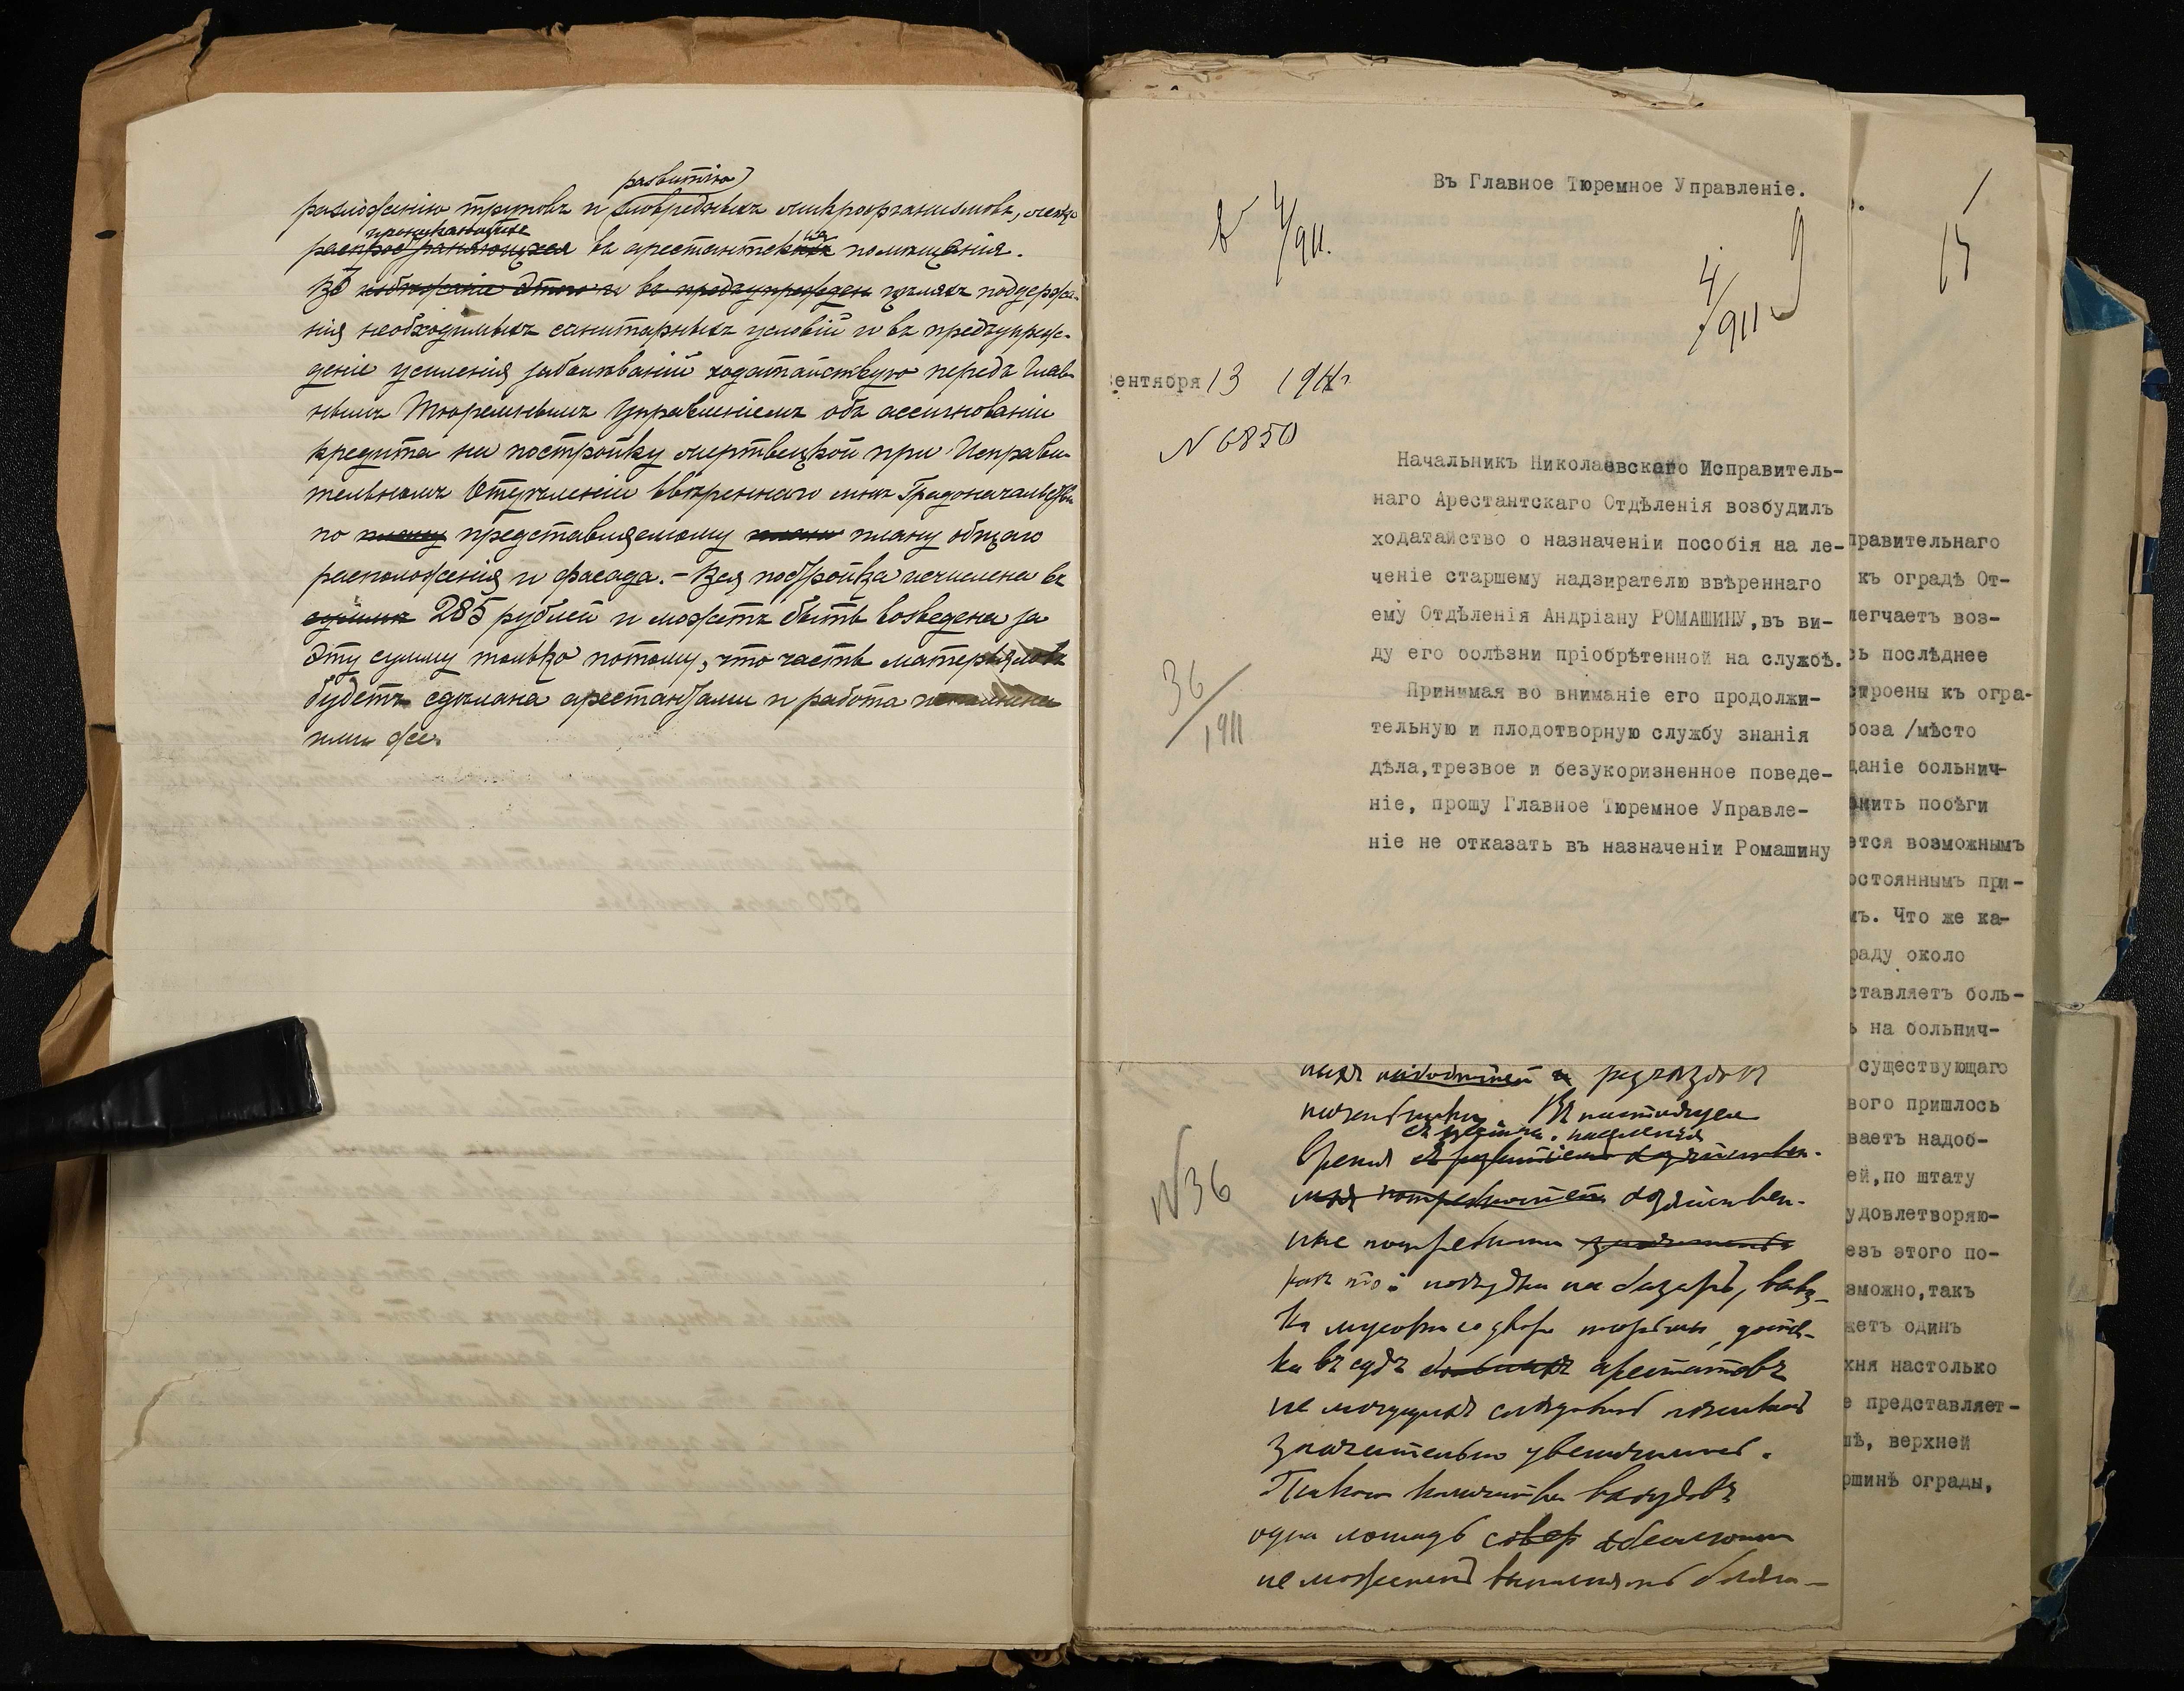 развитію
разложенію труповъ и зловредныхъ микроорганизмовъ, легко
проникающихъ
распространяющихся въ арестантскія помѣщенія.
Въ избѣжаніе этого и въ предупрежден цѣляхъ поддержа-
нія необходимыхъ санитарныхъ условій и въ предупреж-
деніе усиленія заболѣваній ходатайствую передъ Глав-
нымъ Тюремнымъ Управленіемъ объ ассигнованіи
кредита на постройку мертвецкой при Исправи-
тельномъ Отдѣленіи ввѣреннаго мнѣ Градоначальства
по плану представляемому плану общаго
расположенія и фасада. - Вся постройка исчислена въ
суммѣ 285 рублей и можетъ быть возведена за
эту сумму только потому, что часть матерьяловъ
будетъ сдѣлана арестантами и работа исполнена
ими же.
Въ Главное Тюремное Управленіе.
4/911.
9
4/911
ентября 13 1911г
N 6850
Начальникъ Николаевскаго Исправитель-
наго Арестантскаго Отдѣленія возбудилъ
ходатайство о назначеніи пособія на ле-
ченіе старшему надзирателю ввѣреннаго
ему Отдѣленія Андріану РОМАШИНУ,въ ви-
ду его болѣзни пріобрѣтенной на службѣ.
36/1911
Принимая во вниманіе его продолжи-
тельную и плодотворную службу знанія
дѣла,трезвое и безукоризненное поведе-
ніе, прошу Главное Тюремное Управле-
ніе не отказать въ назначеніи Ромашину
разъѣздовъ
Въ настоящее
населенія
время
N36
потребностей хозяйствен-
ныя потребности
какъ то: поѣздки на базаръ, вывоз-
ка мусора со двора тюрьмы, достав-
ка въ судъ больныхъ арестантовъ
не могущихъ слѣдовать пѣшкомъ
значительно увеличились.
Такого количества выѣздовъ
одна лошадь совер абсолютно
не можетъ выполнять
15
правительнаго
къ оградѣ От-
легчаетъ воз-
ь послѣднее
строены къ огра-
боза /мѣсто
даніе больнич-
нить побѣги
ется возможнымъ
остояннымъ при-
мъ. Что же ка-
раду около
ставляетъ боль-
ь на больнич-
существующаго
вого пришлось
ваетъ надоб-
ей,по штату
удовлетворяю-
езъ этого по-
зможно,такъ
жетъ одинъ
хня настолько
е представляет-
пѣ, верхней
ршинѣ ограды,